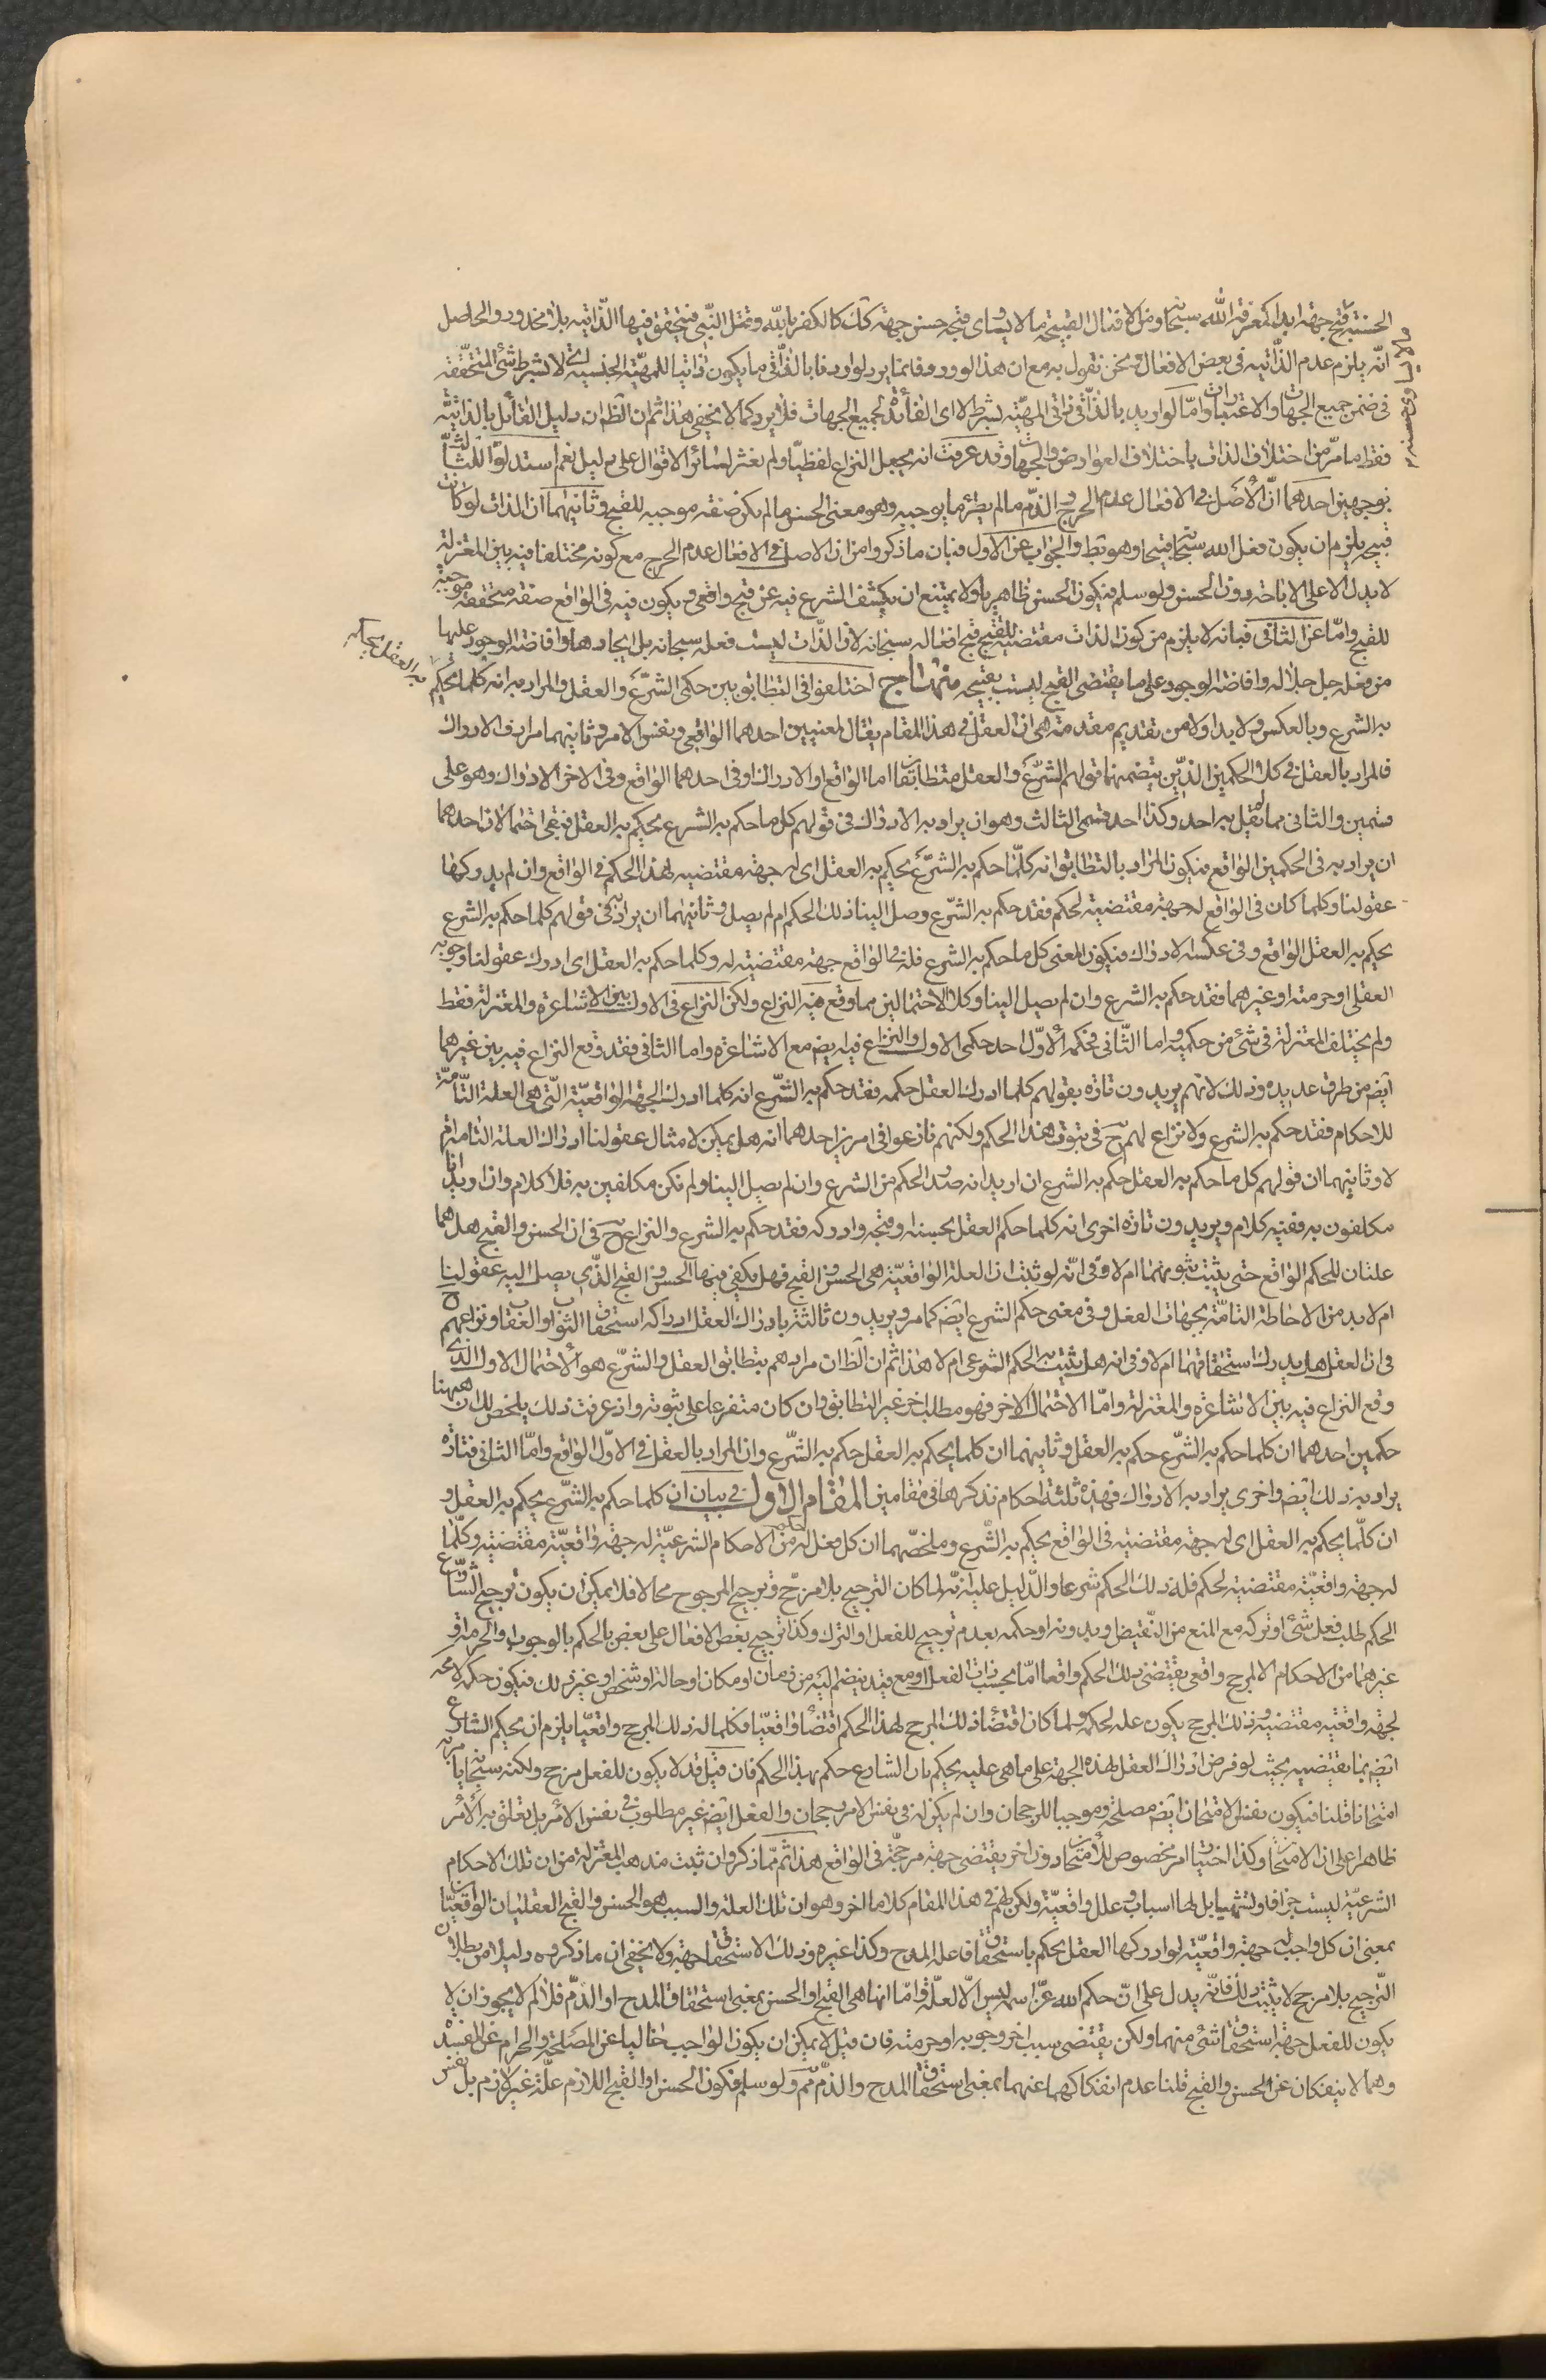 الحسنة قبح جهة ابدا كمعرفة الله سبحا ومن الافعال القبيحة ما لا يساوى قبحه حسن جهة كك كالكفر بالله وقتل النبى فيتحقق فيها الذاتيه بلا محذور والحاصل
انه يلزم عدم الذاتيه فى بعض الافعال ونحن نقول به مع ان هذا الورود فانما يرد لو اردنا بالذاتى ما يكون ذاتيا للمهية الجنسية اى لا بشرط شئ المتحققه
فى ضمن جميع الجهات والاعتبارات واما لو اريد بالذاتى ذاتى المهية بشرط لا اى الفاقد لجميع الجهات فلا يرد كما لا يخفى هذا ثم ان الظ ان دليل القائل بالذاتية
فقط ما مر من اختلاف الذات باختلاف العوارض والجهات وقد عرفت انه يجعل النزاع لفظيا ولم نعثر لسائر الاقوال على دليل نعم استدلوا للثالث
بوجهين احدهما ان الاصل فى الافعال عدم الحرج والذم ما لم يطرء ما يوجبه وهو معنى الحسن ما لم يكن صفة موجبه للقبح وثانيهما ان الذات لو كانت
قبيحه يلزم ان يكون فعل الله سبحا قبيحا وهو بط والجواب عن الاول فبان ما ذكروا من ان الاصل فى الافعال عدم الحرج مع كونه مختلفا فيه بين المعتزلة
لا يدل الا على الاباحة دون الحسن ولو سلم فيكون الحسن ظاهريا ولا يمتنع ان يكشف الشرع فيه عن قبح واقعى ويكون فيه فى الواقع صفة متحققة موجبة
للقبح واما عن الثانى فبانه لا يلزم من كون الذات مقتضيه للقبح قبح افعاله سبحانه لان الذات ليست فعله سبحانه بل ايجادها وافاضة الوجود عليها
من فعله جل جلاله وافاضة الوجود على ما يقتضى القبح ليست بقبيحه منهاج اختلفوا فى التطابق بين حكمى الشرع والعقل والمراد به انه كلما يحكم
به العقل يحكم
به الشرع وبالعكس ولا بد اولا من تقديم مقدمة هى ان العقل فى هذا المقام يقال لمعنيين احدهما الواقعى ونفس الامر وثانيهما مرادف الادراك
فالمراد بالعقل فى كلا الحكمين الذين يتضمنهما قولهم الشرع والعقل متطابقان اما الواقع او الادراك او فى احدهما الواقع وفى الاخر الادراك وهو على
قسمين والثانى مما لم يقل به احد وكذا احد قسمى الثالث وهو ان يراد به الادراك فى قولهم كل ما حكم به الشرع يحكم به العقل فبقى احتمالان احدهما
ان يراد به فى الحكمين الواقع فيكون المراد بالتطابق انه كلما حكم به الشرع يحكم به العقل اى له جهة مقتضيه لهذا الحكم فى الواقع وان لم يدركها
عقولنا وكلما كان فى الواقع له جهة مقتضية لحكم فقد حكم به الشرع وصل الينا ذلك الحكم ام لم يصل وثانيهما ان يراد به فى قولهم كلما حكم به الشرع
يحكم به العقل الواقع وفى عكسه الادراك فيكون المعنى كل ما حكم به الشرع فله فى الواقع جهة مقتضية له وكلما حكم به العقل اى ادرك عقولنا وجوبه
العقلى او حرمته او غيرهما فقد حكم به الشرع وان لم يصل الينا وكلا الاحتمالين مما وقع فيه النزاع ولكن النزاع فى الاول بين الاشاعرة والمعتزلة فقط
ولم يختلف المعتزلة فى شئ من حكميه واما الثانى فحكمه الاول احد حكمى الاول والنزاع فيه ايض مع الاشاعرة واما الثانى فقد وقع النزاع فيه بين غيرهما
ايض من طرق عديده وذلك لانهم يريدون تارة بقولهم كلما ادرك العقل حكمه فقد حكم به الشرع انه كلما ادرك الجهة الواقعية التى هى العلة التامة
للاحكام فقد حكم به الشرع ولا نزاع لهم ح فى ثبوت هذا الحكم ولكنهم نازعوا فى امرين احدهما انه هل يمكن لامثال عقولنا ادراك العلة التامة ام
لا وثانيهما ان قولهم كل ما حكم به العقل حكم به الشرع ان اريد انه صدر الحكم من الشرع وان لم يصل الينا ولم نكن مكلفين به فلا كلام وان اريد انا
مكلفون به ففيه كلام ويريدون تارة اخرى انه كلما حكم العقل بحسنه وقبحه وادركه فقد حكم به الشرع والنزاع ح فى ان الحسن والقبح هل هما
علتان للحكم الواقع حتى يثبت بثبوتهما ام لا وفى انه لو ثبت ان العلة الواقعية هى الحسن والقبح فهل يكفى فيها الحسن والقبح الذى يصل اليه عقولنا
ام لا بد من الاحاطة التامة بجهات الفعل وفى معنى حكم الشرع ايض كما مر ويريدون ثالثة بادراك العقل ادراكه استحقاق الثواب والعقاب ونزاعهم ح
فى ان العقل هل يدرك استحقاقهما ام لا وفى انه هل يثبت به الحكم الشرعى ام لا هذا ثم ان الظ ان مرادهم بتطابق العقل والشرع هو الاحتمال الاول الذى
وقع النزاع فيه بين الاشاعرة والمعتزلة واما الاحتمال الاخر فهو مطلب اخر غير التطابق وان كان متفرعا على ثبوته واذ عرفت ذلك يلخص لك ان ههنا
حكمين احدهما ان كلما حكم به الشرع حكم به العقل وثانيهما ان كلما يحكم به العقل حكم به الشرع وان المراد بالعقل فى الاول الواقع واما الثانى فتارة
يراد به ذلك ايض واخرى يراد به الادراك فهذه ثلثة احكام نذكرها فى مقامين المقام الاول فى بيان ان كلما حكم به الشرع يحكم به العقل و
ان كلما يحكم به العقل اى له جهة مقتضية فى الواقع يحكم به الشرع وملخصهما ان كل فعل له حكم من الاحكام الشرعية له جهة واقعية مقتضية وكلما
له جهة واقعية مقتضية لحكم فله ذلك الحكم شرعا والدليل عليه انه لما كان الترجيح بلا مرجح وترجيح المرجوح محالا فلا يمكن ان يكون ترجيح الشارع
الحكم طلب فعل شئ او تركه مع المنع من النقيض وبدونه او حكمه بعدم ترجيح للفعل او الترك وكذا ترجيح بعض الافعال على بعض بالحكم بالوجوب او الحرمة او
غيرهما من الاحكام الا لمرجح واقعى يقتضى ذلك الحكم واقعا اما بحسب ذات الفعل او مع قيد ينضم اليه من زمان او مكان او حالة او شخص او غير ذلك فيكون حكمه لا محه
لجهة واقعية مقتضيه وذلك المرجح يكون علة لحكمه ولما كان اقتضاء ذلك المرجح لهذا الحكم اقتضاء واقعيا فكلما له ذلك المرجح واقعيا يلزم ان يحكم الشارع
ايض بما يقتضيه بحيث لو فرض ادراك العقل لهذه الجهة على ما هى عليه يحكم بان الشارع حكم بهذا الحكم فان قيل قد لا يكون للفعل مرجح ولكنه سبحا يامر به
امتحانا قلنا فيكون نفس الامتحان ايض مصلحة وموجبا للرجحان وان لم يكن له فى نفس الامر رجحان والفعل ايض غير مطلوب فى نفس الامر بل تعلق به الامر
ظاهرا على ان الامتحان وكذا اختيار امر مخصوص للامتحان دون اخر يقتضى جهة مرجحة فى الواقع هذا ثم مما ذكر وان ثبت مذهب المعتزلة من ان تلك الاحكام
الشرعية ليست جزافا وتشهيا بل لها اسباب وعلل واقعية ولكن لهم فى هذا المقام كلاما اخر وهو ان تلك العلة والسبب هو الحسن والقبح العقليان الواقعيان
بمعنى ان كل واجب له جهة واقعية لو ادركها العقل يحكم باستحقاق فاعله المدح وكذا غيره وذلك الاستحقاق جهة ولا يخفى ان ما ذكروه دليلا من بطلان
الترجيح بلا مرجح لا يثبت ذلك فانه يدل على ان حكم الله عز اسمه ليس الا لعلة واما انها هى القبح او الحسن بمعنى استحقاق المدح او الذم فلا لم لا يجوز ان لا
يكون للفعل جهة استحقاق شئ منهما ولكن يقتضى سبب اخر وجوبه او حرمته فان قيل لا يمكن ان يكون الواجب خاليا عن المصلحة والحرام عن المفسدة
وهما لا ينفكان عن الحسن والقبح قلنا عدم انفكاكهما عنهما بمعنى استحقاق المدح والذم مم ولو سلم فكون الحسن او القبح اللازم علة غير لازم بل نفس